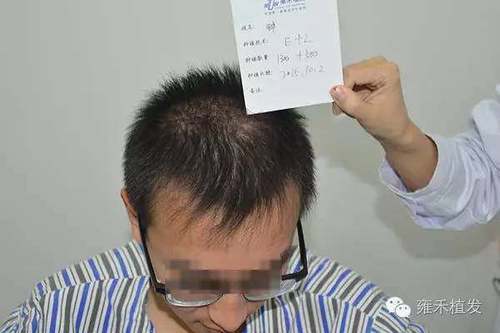 姓名:
种植技术: E+L
种植数量: 1300 + 500
种植日期: 2015.10.2
备注:
雍禾植发